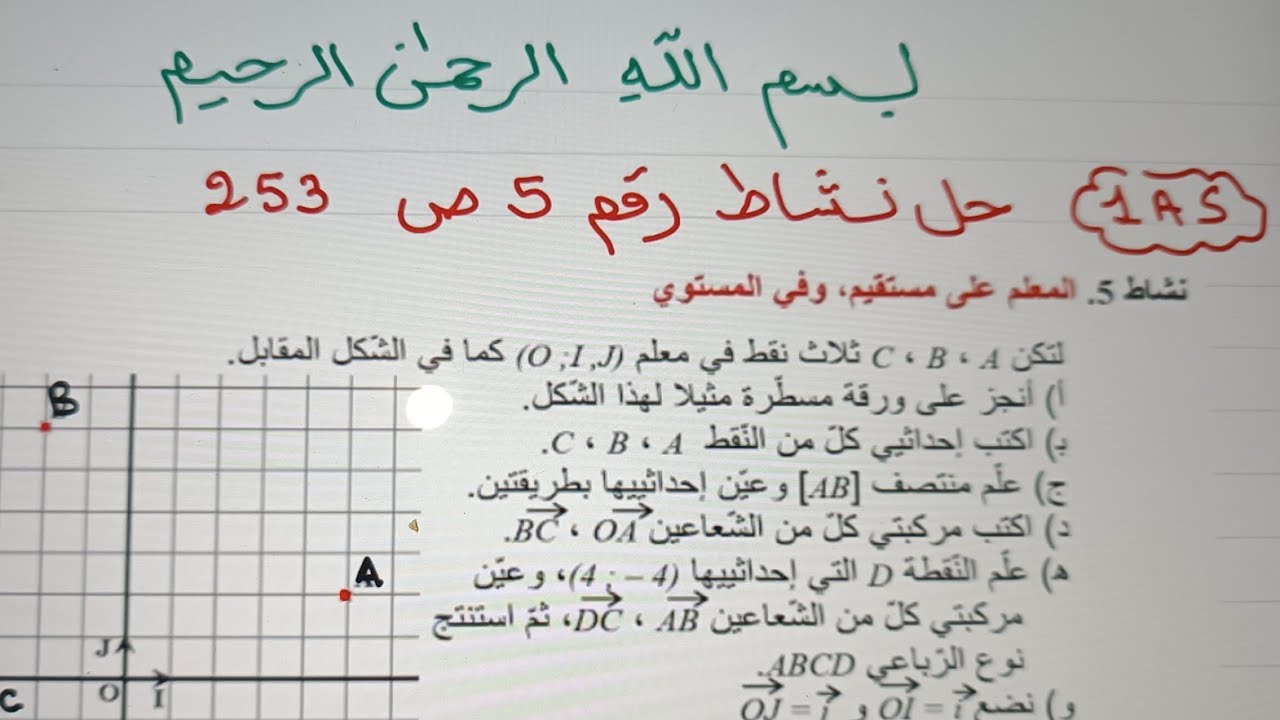 بسم اللّٰهِ الرحمٰن الرحيم
1AS حل نشاط رقم 5 ص 253
نشاط 5. المعلم على مستقيم، وفي المستوي
لتكن A ، B ، C ثلاث نقط في معلم (O ; I , J) كما في الشّكل المقابل.
أ) أنجز على ورقة مسطّرة مثيلا لهذا الشّكل.
بـ) اكتب إحداثيي كلّ من النّقط A ، B ، C.
ج) علّم منتصف [AB] وعيّن إحداثييها بطريقتين.
د) اكتب مركبتي كلّ من الشّعاعين OA ، BC.
هـ) علّم النّقطة D التي إحداثييها (4 ; – 4)، وعيّن
مركبتي كلّ من الشّعاعين AB ، DC، ثمّ استنتج
نوع الرّباعي ABCD.
و) نضع OI = i و OJ = j
B
A
J
C
O
I